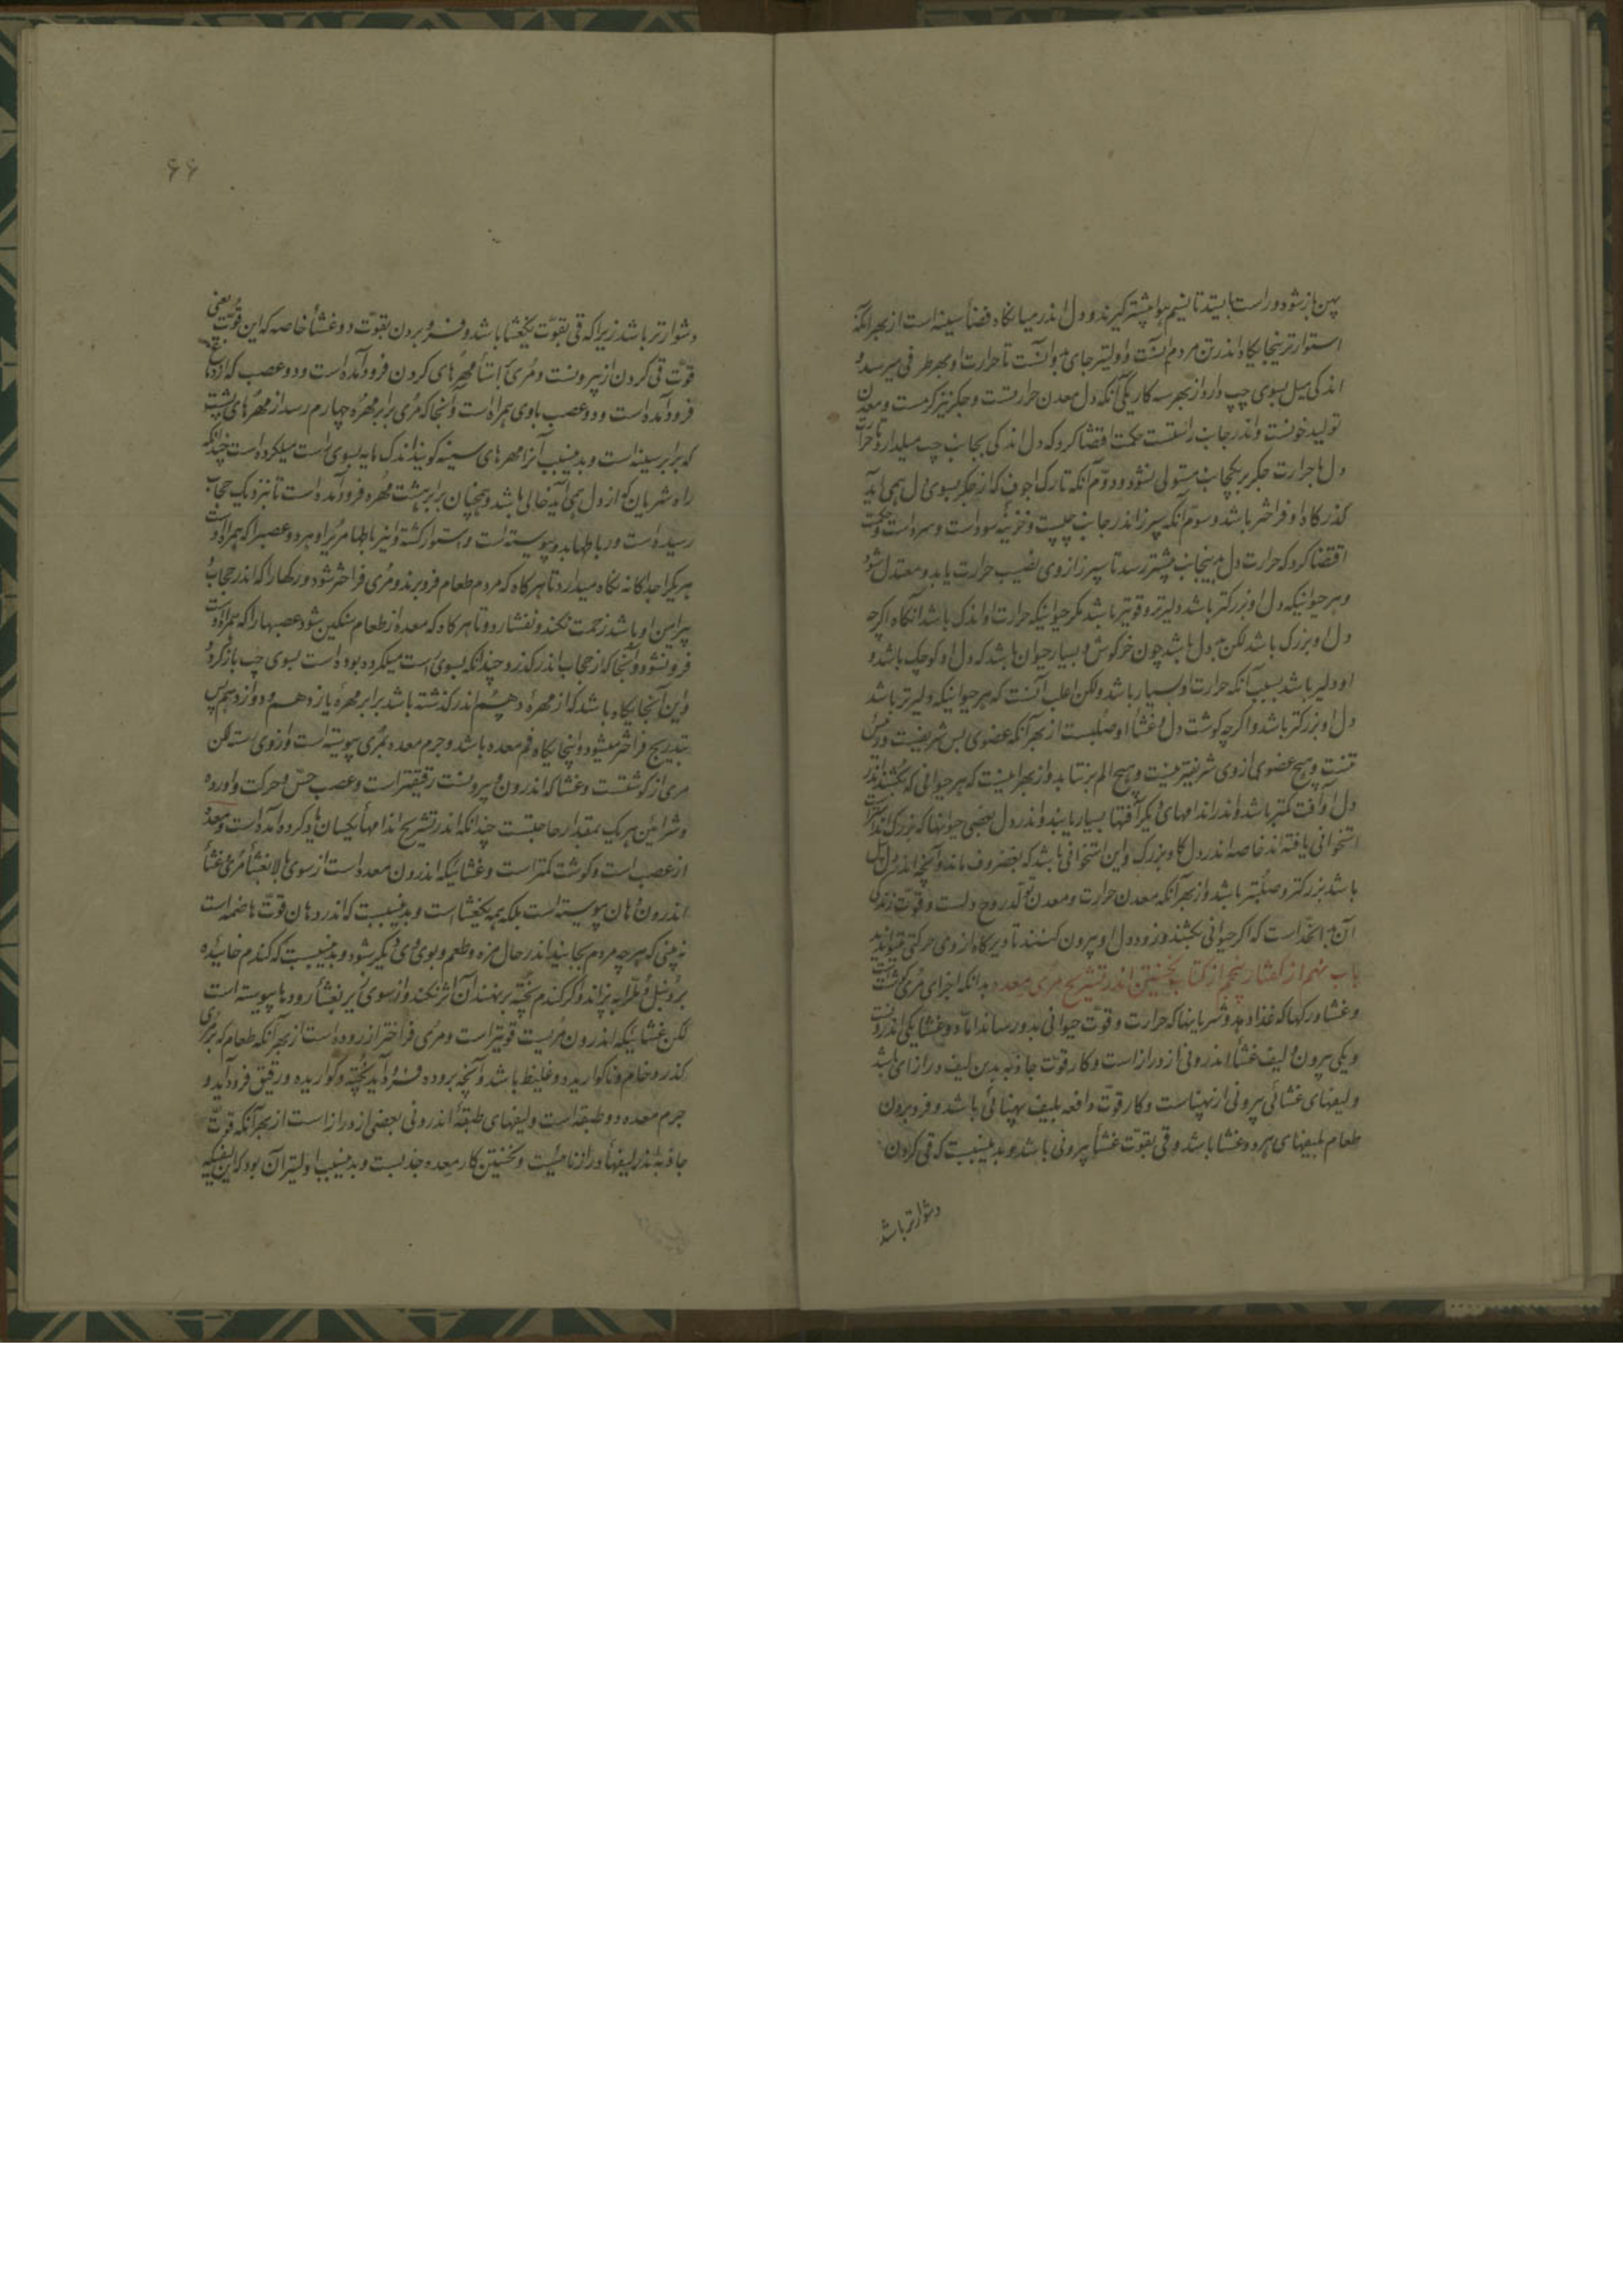 پهن باز شود و راست بایستد تا نسیم هوا بیشتر گیرند و دل اندر میانگاه فضأ سینه است از بهر آنکه
استوارترینجایگاه اندر تن مردم آنست و اولیتر جای بدو آنست تا حرارت او بهر طرفی میرسد و
اندکی میل بسوی چپ دارد از بهر سه کار یکی آنکه دل معدن حرارتست و جگر نیز گرمست و معدن
تولید خونست و اندر جانب راستست حکمت اقتضا کرد که دل اندکی بجانب چپ میل دارد تا حرارت
دل با حرارت جگر بر یکجانب مستولی نشود و دوّم آنکه تا رگ اجوف که از جگر بسوی دل همی آید
گذرگاه او فراختر باشد و سوّم آنکه سپرز اندر جانب چپست و خزینه سوداست و سرد است و حکمت
اقتضا کرد که حرارت دل بدینجانب بیشتر رسد تا سپرز از وی نصیب حرارت یابد و معتدل شود
و هر حیوانیکه دل او بزرگتر باشد دلیرتر و قویتر باشد مگر حیوانیکه حرارت او اندک باشد آنگاه اگرچه
دل او بزرگ باشد لکن بددل باشد چون خرگوش و بسیار حیوان باشد که دل او کوچک باشد و
او دلیر باشد بسبب آنکه حرارت او بسیار باشد ولکن اغلب آنست که هر حیوانیکه دلیرتر باشد
دل او بزرگتر باشد و اگرچه گوشت دل و غشأ او صلبست از بهر آنکه عضوی بس شریفست و رئیس
تنست و هیچ عضوی از وی شریفتر نیست و هیچ الم برنتابد و از بهر اینست که هر حیوانی که بکشند اندر
دل او آفت کمتر باشد و اندر اندامهای دیگر آفتها بسیار یابند و اندر دل بعضی حیوانها که بزرگ اندامترست
استخوانی یافته اند خاصه اندر دل گاو بزرگ و این استخوانی باشد که بغضروف ماند و آنچه اندر دل پیل
باشد بزرگتر و صلبتر باشد و از بهر آنکه معدن حرارت و معدن تولد روح دلست و قوّت زندگی
آن اگر حیوانی بکشند و زود دل او بیرون کنند تا دیرگاه از وی حرکتی میتوان دید
باب نهم از گفتار پنجم از کتاب نخستین اندر تشریح مری و معده بدانکه اجزای مری گوشتست
و غشا و رگها که غذا دهد و شریانها که حرارت و قوّت حیوانی بدو رساند امّا دو غشا یکی اندرونست
و یکی بیرون و لیف غشأ اندرونی از درازاست و کار قوّت جاذبه بدین لیف درازای باشد
و لیفهای غشائی بیرونی از پهناست و کار قوّت دافعه بلیف پهنائی باشد و فروبردن
طعام بلیفهای هر دو غشا باشد و قی بقوّت غشأ بیرونی باشد و بدینسببست که قی کردن
دشوارتر باشد
۶۶
دشوارتر باشد زیرا که قی بقوّت یکغشا باشد و فروبردن بقوّت دو غشأ خاصه که این قوّت یعنی
قوّت قی کردن از بیرونست و مری باستأ مهرهای گردن فرود آمده است و دو عصب که از دماغ
فرود آمده است و دو عصب با وی همراه است و آنجا که مری برابر مهره چهارم رسد از مهرهای پشت
که برابر سینه است و بدینسبب آنرا مهرهای سینه گویند اندک مایه بسوی راست میل کرده است چندانکه
راه شریان که از دل همی آید خالی باشد و همچنان برابر هشت مهره فرود آمده است تا نزدیک حجاب
رسیده است و رباطها بدو پیوسته است و استوار گشته و نیز رباطها مر او را و هر دو عصبرا که همراه اوست
هر یکرا جداگانه نگاه میدارد تا هر گاه که مردم طعام فرو برند و مری فراختر شود رگها را که اندر حجاب
پیرامن او باشد زحمت نکند و نفشارد و تا هر گاه که معده از طعام سنگین شود عصبها را که همراه اوست
فرو نشود و آنجا که از حجاب اندر گذرد چندانکه بسوی راست میل کرده بوده است بسوی چپ باز گردد
و این آنجایگاه باشد که از مهره دهم اندر گذشته باشد برابر مهره یازدهم و دوازدهم پس
بتدریج فراختر میشود و اینجایگاه فم معده باشد و جرم معده بمری پیوسته است و از وی است لکن
مری از گوشتست و غشا که اندرون و بیرونست رقیقتر است و عصب حسّ و حرکت و اورده
و شرایین هر یک بمقدار حاجتست چندانکه اندر تشریح اندامهأ یکسان یاد کرده آمده است و معده
از عصب است و گوشت کمتر است و غشائیکه اندرون معده است از سوی بالا بغشأ مری و غشأ
اندرون دهان پیوسته است بلکه همه یکغشا است و بدینسببست که اندر دهان قوّت هاضمه است
نه بینی که هر چه مردم بخایند اندر حال مزه و طعم و بوی وی دیگر شود و بدینسببست که گندم خائیده
بر دنبل و طراره نهند پزاند و اگر گندم پخته بر نهند آن اثر نکند و از سوی زیر بغشأ رودها پیوسته است
لکن غشائیکه اندرون مریست قویتر است و مری فراختر از روده است از بهر آنکه طعام که بر مری
گذرد خام و ناگواریده و غلیظ باشد و آنچه بروده فرود آید پخته و گواریده و رقیق فرود آید و
جرم معده دو طبقه است و لیفهای طبقه اندرونی بعضی از درازاست از بهر آنکه قوّت
جاذبه اندر لیفهأ درازنائیست و نخستین کار معده جذبست و بدینسبب اولیتر آن بود که این لیف که